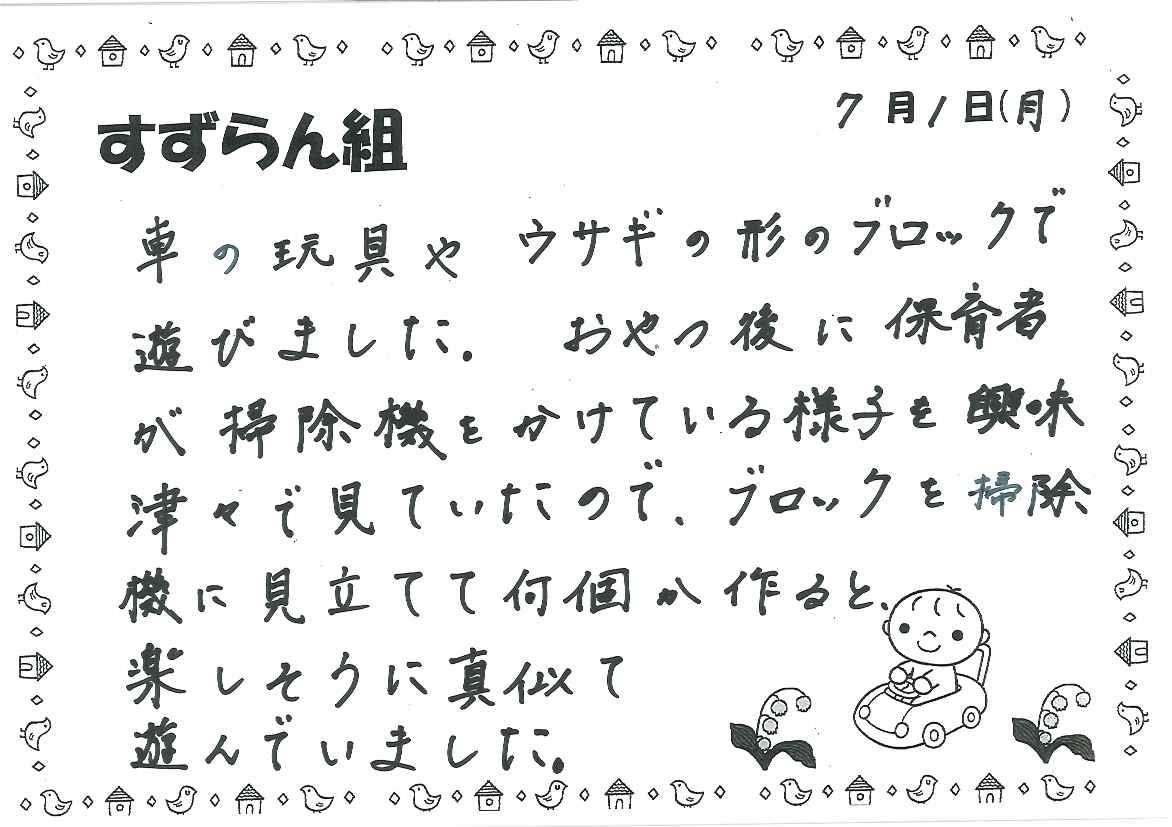 7月1日(月)
すずらん組
車の玩具や ウサギの形のブロックで
遊びました。 おやつ後に保育者
が掃除機をかけている様子を興味
津々で見ていたので、ブロックを掃除
機に見立てて何個か作ると、
楽しそうに真似て
遊んでいました。